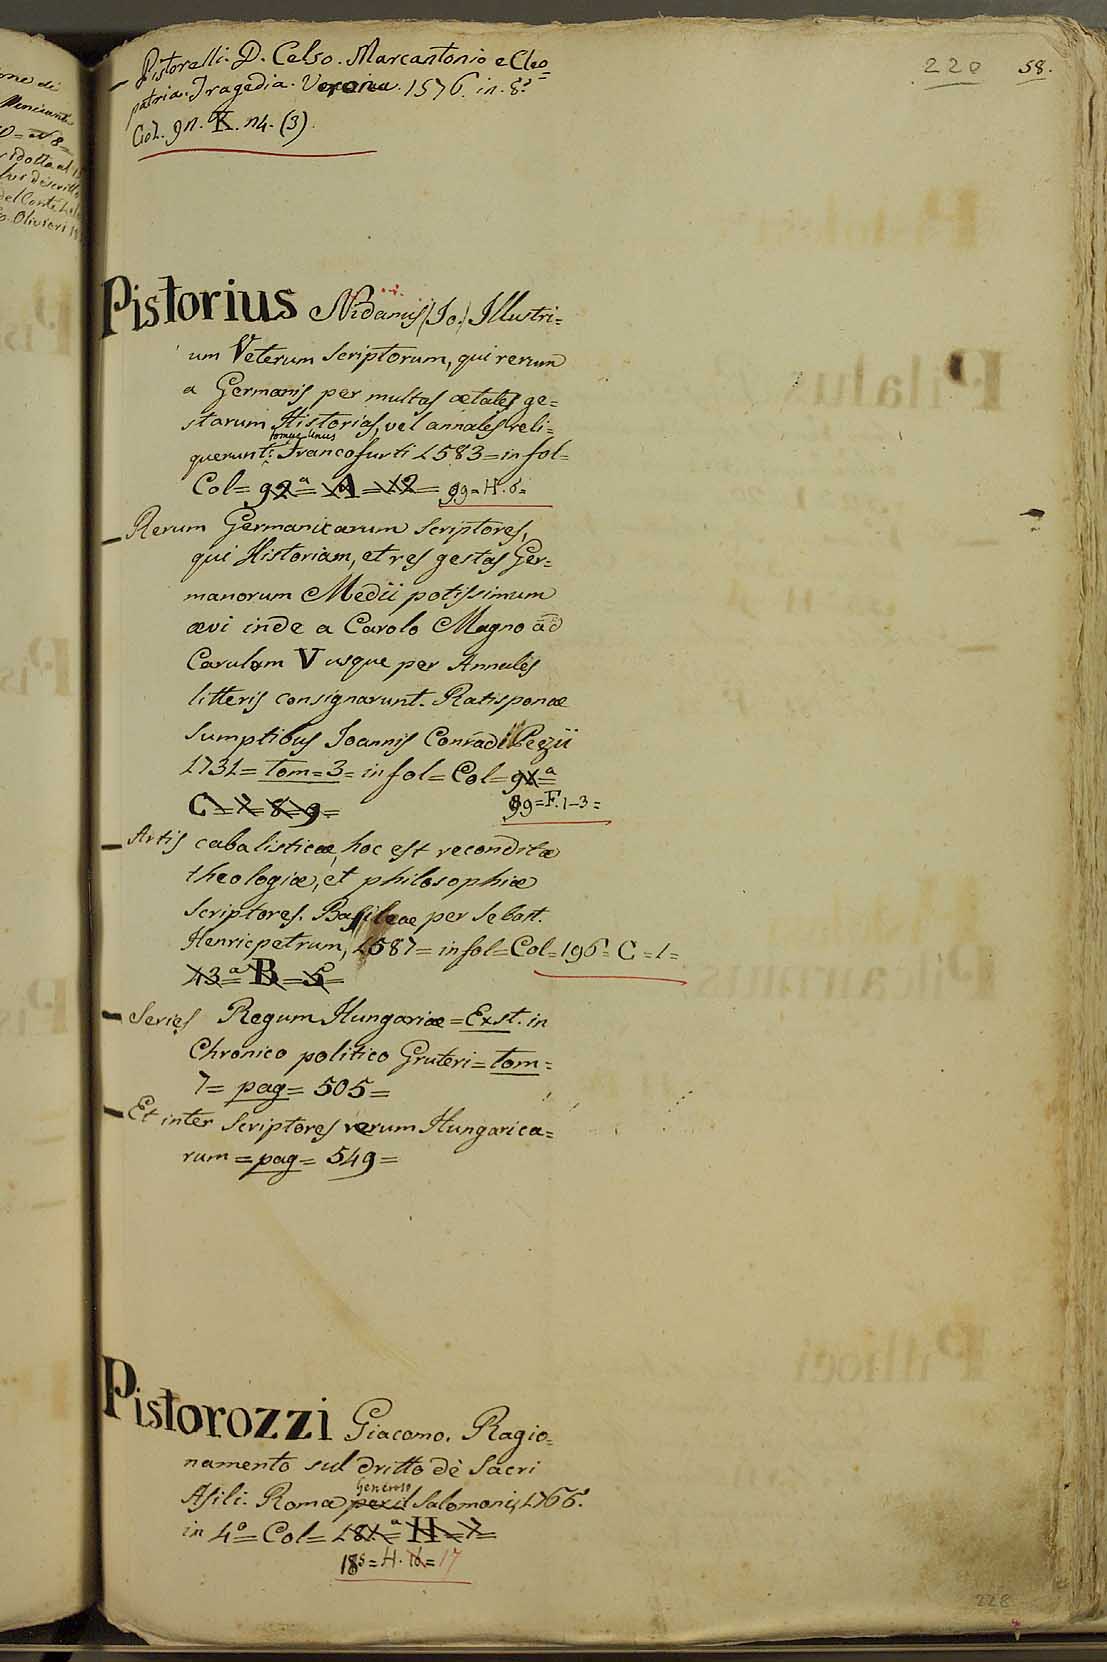 220 58.
Pistorelli. D. Celso. Marcantonio e Cleo=
patria. Tragedia. Verona. 1576. in. 8.º
Col. 9n. K. n4. (3).
Pistorius Nidanus (Jo.) Illustri=
um Veterum scriptorum, qui rerum
a Germanis per multas ætates ge=
starum Historias, vel annales reli=
tomus unus
querunt: Francofurti 1583= in fol=
Col= 92ª= A= 12= 99= H. 6=
Rerum Germanicarum scriptores,
qui Historiam, et res gestas Ger=
manorum Medii potissimum
ævi inde a Carolo Magno ad
Carulam V usque per Annales
litteris consignarunt. Ratisponæ
sumptibus Joannis Conradi Pezii
1731= tom= 3= in fol= Col= 91ª=
C= 7= 8= 9= 99= F. 1-3=
Artis cabalisticæ, hoc est reconditæ
theologiæ, et philosophiæ
scriptores. Basileae per Sebast.
Henricpetrum, 1587= in fol= Col= 196= C= 1=
43ª= B= 5=
Series Regum Hungariæ= Exst. in
Chronico politico Gruteri= tom=
7= pag= 505=
Et inter Scriptores rerum Hungarica=
rum= pag= 549=
Pistorozzi Giacomo. Ragio=
namento sul dritto dè Sacri
Generoso
Asili. Roma per il Salomoni, 1766.
in 4º= Col= 181ª= H= 7=
185= H. 17
228